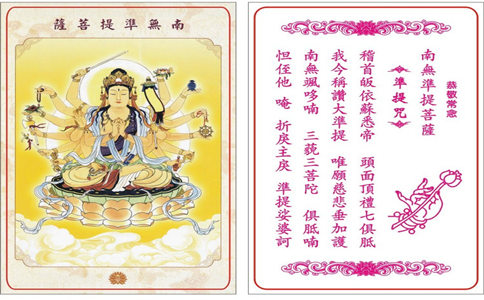 南無準提菩薩
恭敬常念
南無準提菩薩
準提咒
稽首皈依蘇悉帝 頭面頂禮七俱胝
我今稱讚大準提 唯願慈悲垂加護
南無颯哆喃 三藐三菩陀 俱胝喃
怛侄他 唵 折戾主戾 準提娑婆訶